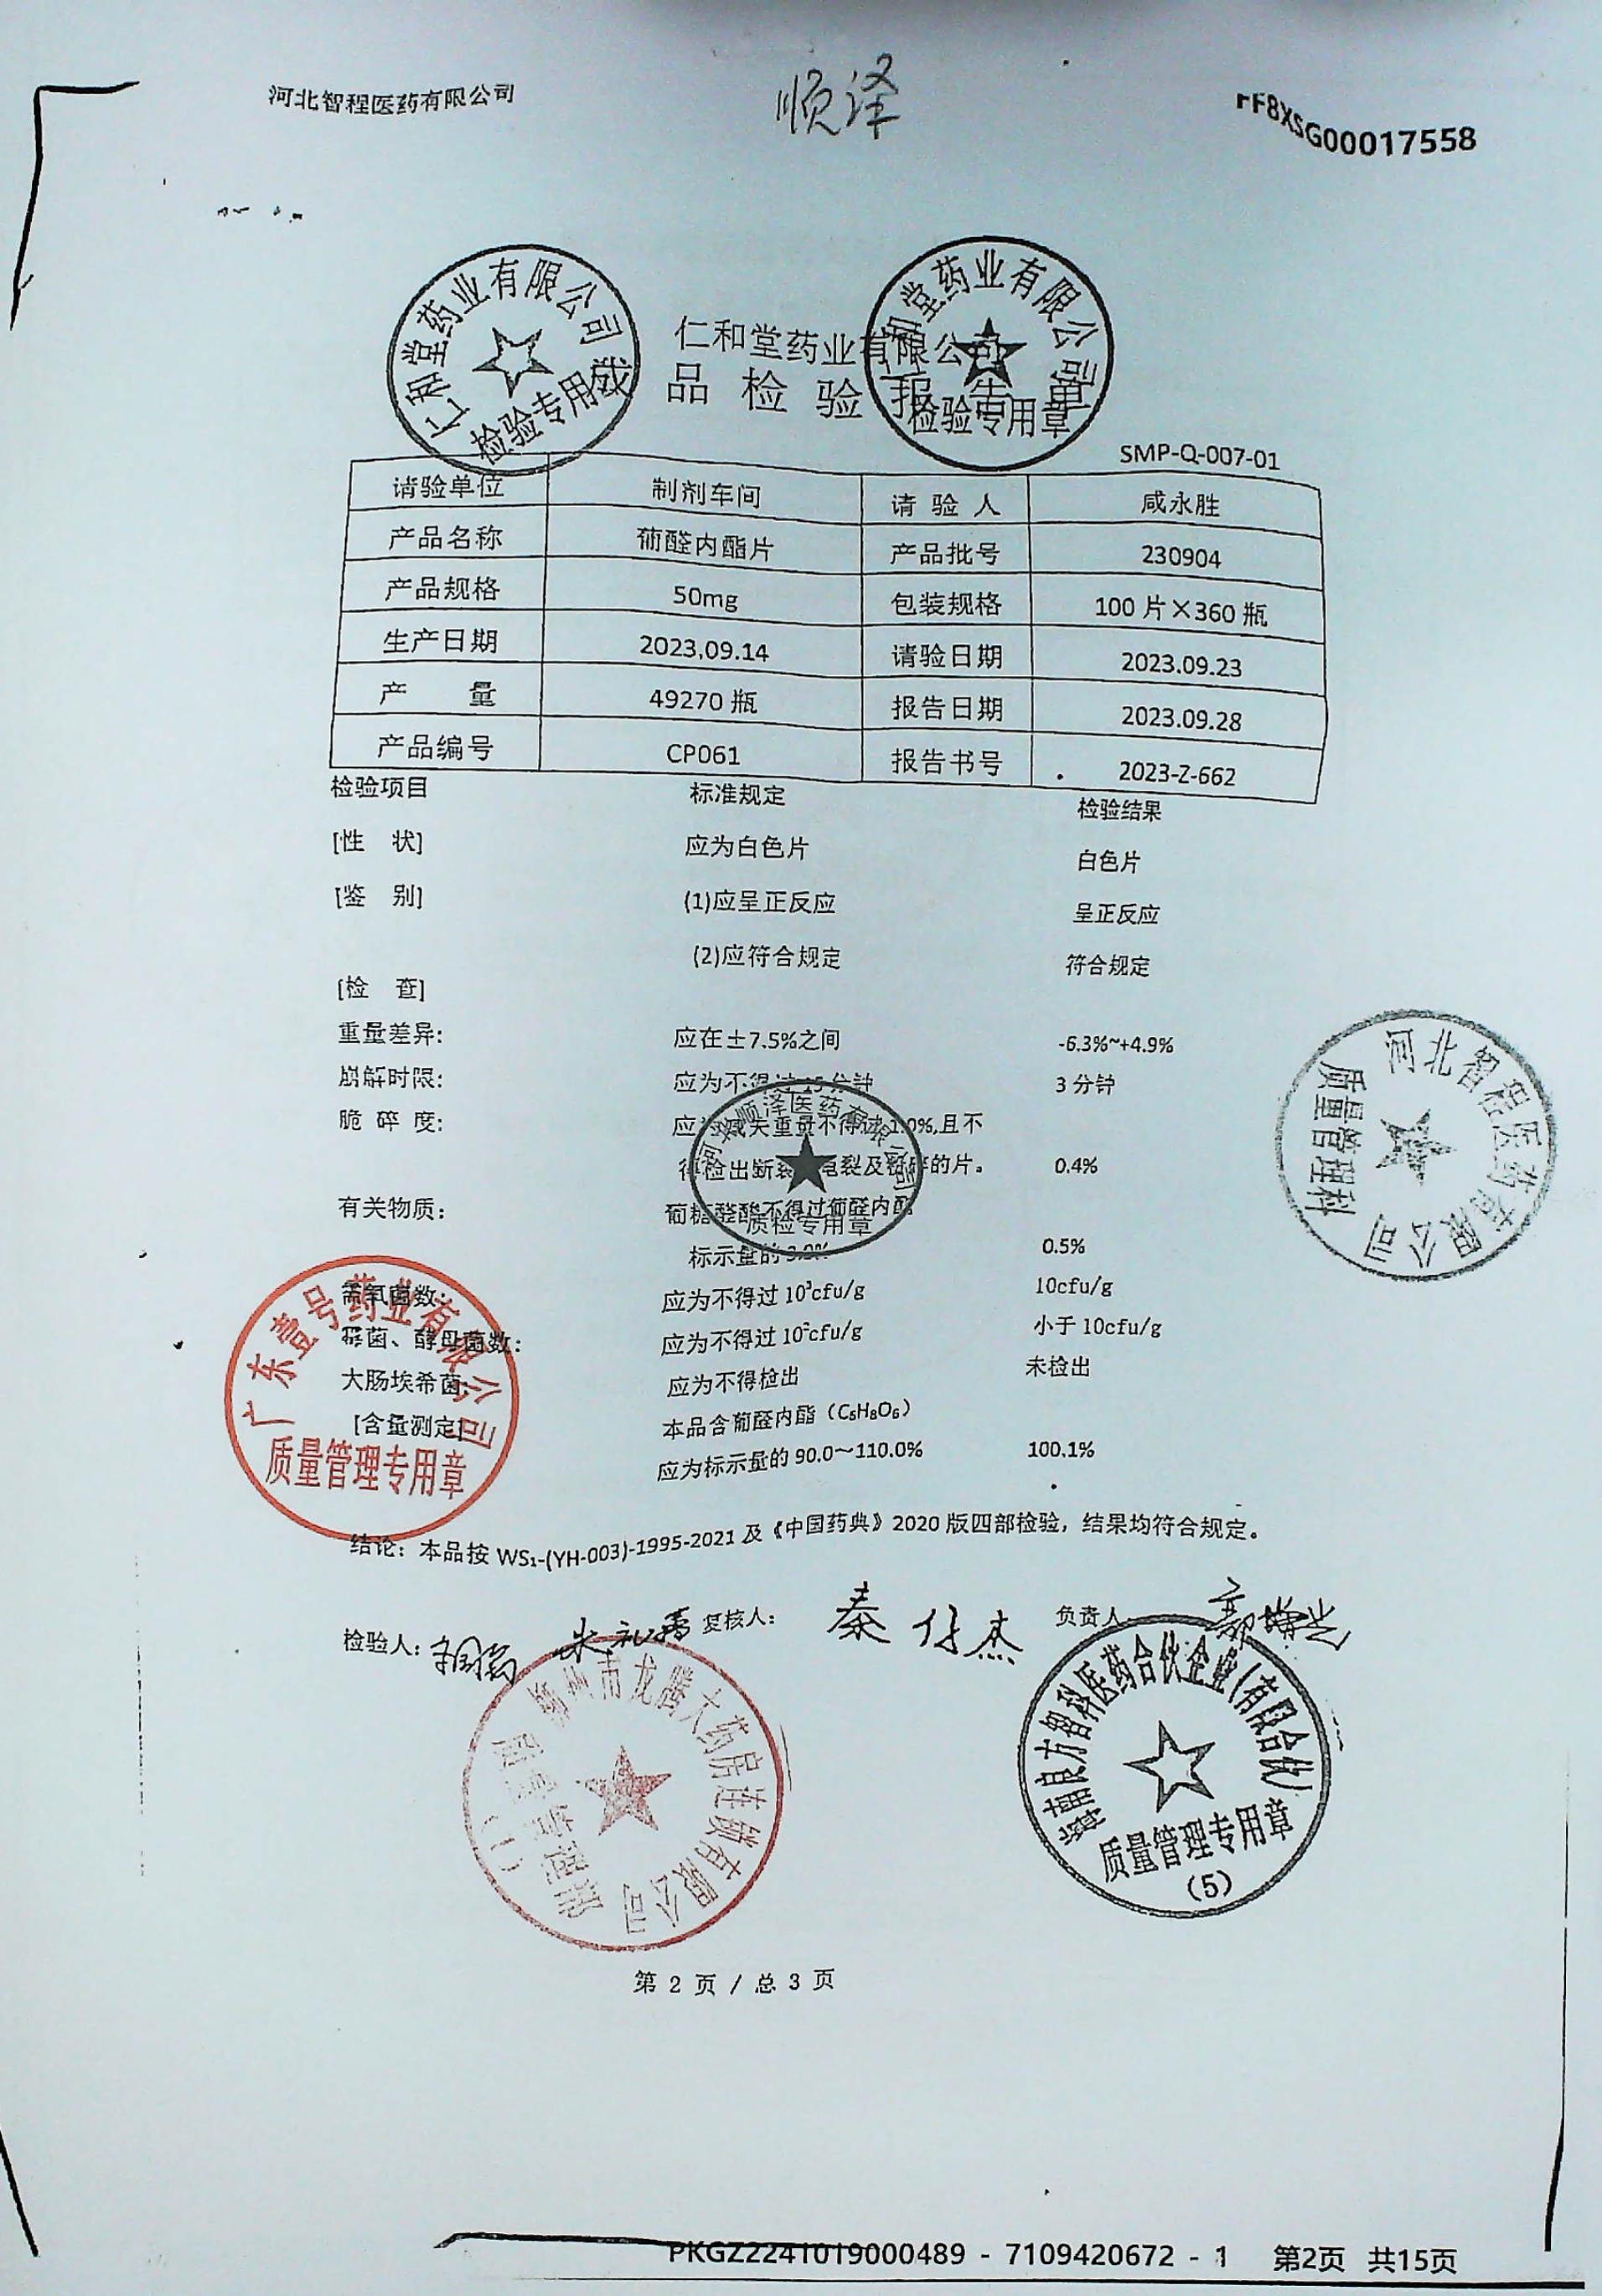 河北智程医药有限公司
顺泽
FF8XSG00017558
仁和堂药业有限公司
检验专用章
仁和堂药业有限公司
检验专用章
仁和堂药业有限公司
成品检验报告单
SMP-Q-007-01
请验单位 制剂车间 请验人 咸永胜
产品名称 葡醛内酯片 产品批号 230904
产品规格 50mg 包装规格 100片×360瓶
生产日期 2023.09.14 请验日期 2023.09.23
产 量 49270瓶 报告日期 2023.09.28
产品编号 CP061 报告书号 2023-Z-662
检验项目 标准规定 检验结果
[性 状] 应为白色片 白色片
[鉴 别] (1)应呈正反应 呈正反应
(2)应符合规定 符合规定
[检 查]
重量差异: 应在±7.5%之间 -6.3%~+4.9%
崩解时限: 应为不得过15分钟 3分钟
脆碎度: 应为减失重量不得过1.0%,且不
得检出断裂、龟裂及粉碎的片。 0.4%
有关物质: 葡糖醛酸不得过葡醛内酯
标示量的3.0% 0.5%
需氧菌数: 应为不得过10³cfu/g 10cfu/g
霉菌、酵母菌数: 应为不得过10²cfu/g 小于10cfu/g
大肠埃希菌: 应为不得检出 未检出
[含量测定] 本品含葡醛内酯(C₆H₈O₆)
应为标示量的90.0~110.0% 100.1%
顺泽医药有限公司
质检专用章
河北智程医药有限公司
质量管理科
广东壹号药业有限公司
质量管理专用章
结论:本品按WS₁-(YH-003)-1995-2021及《中国药典》2020版四部检验,结果均符合规定。
检验人: 朱礼霞 复核人: 秦仕杰 负责人:
州市龙腾大药房连锁有限公司
质量管理部
(1)
良方智科医药合伙企业(有限合伙)
质量管理专用章
(5)
第 2 页 / 总 3 页
PKGZ2241019000489 - 7109420672 - 1 第2页 共15页